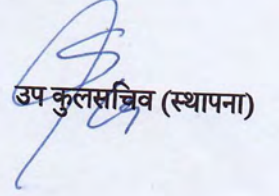 उप कुलसचिव (स्थापना)